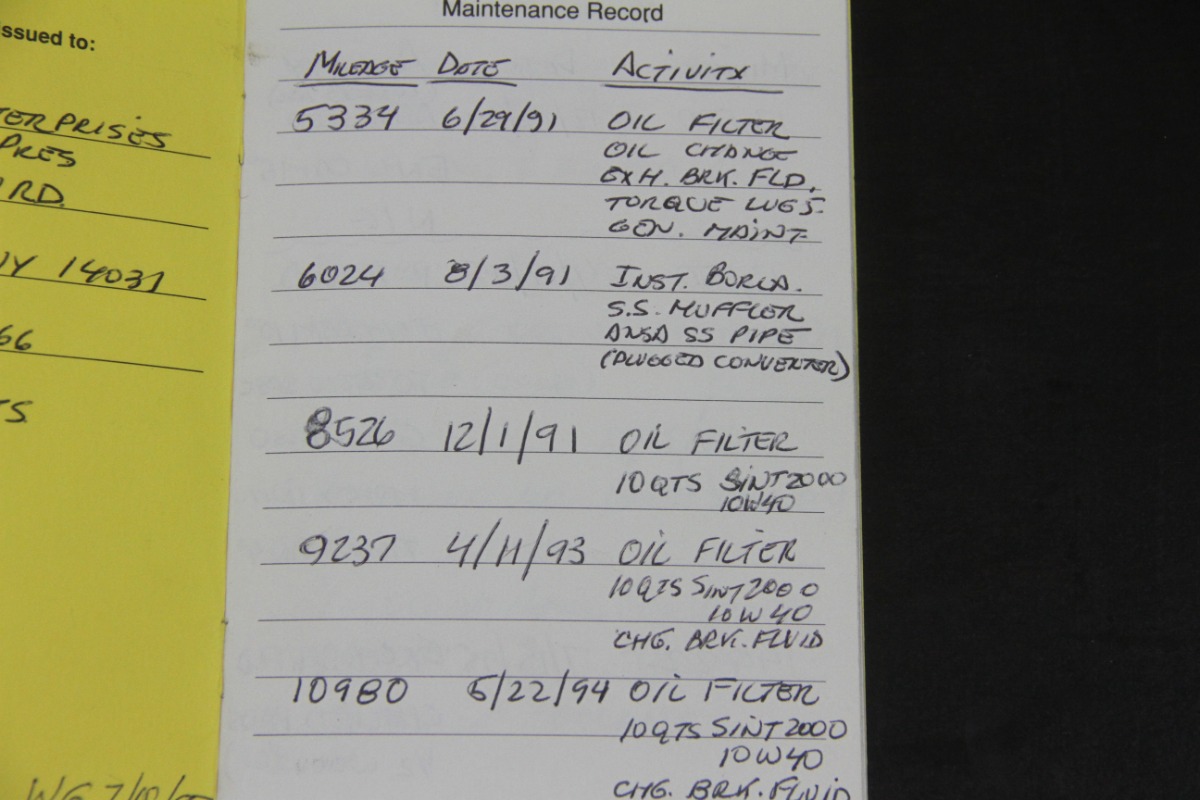 issued to:
TERPRISES
PRES
RD.
NY 14031
66
TS
Maintenance Record
MILEAGE DATE ACTIVITY
5334 6/29/91 OIL FILTER
OIL CHANGE
EXH. BRK. FLD.
TORQUE LUGS.
GEN. MAINT
6024 8/3/91 INST. BORLA.
S.S. MUFFLER
ANSA SS PIPE
(PLUGGED CONVERTER)
8526 12/1/91 OIL FILTER
10 QTS SINT 2000
10W40
9237 4/11/93 OIL FILTER
10 QTS SINT 2000
10W40
CHG. BRK. FLUID
10980 5/22/94 OIL FILTER
10 QTS SINT 2000
10W40
CHG. BRK. FLUID